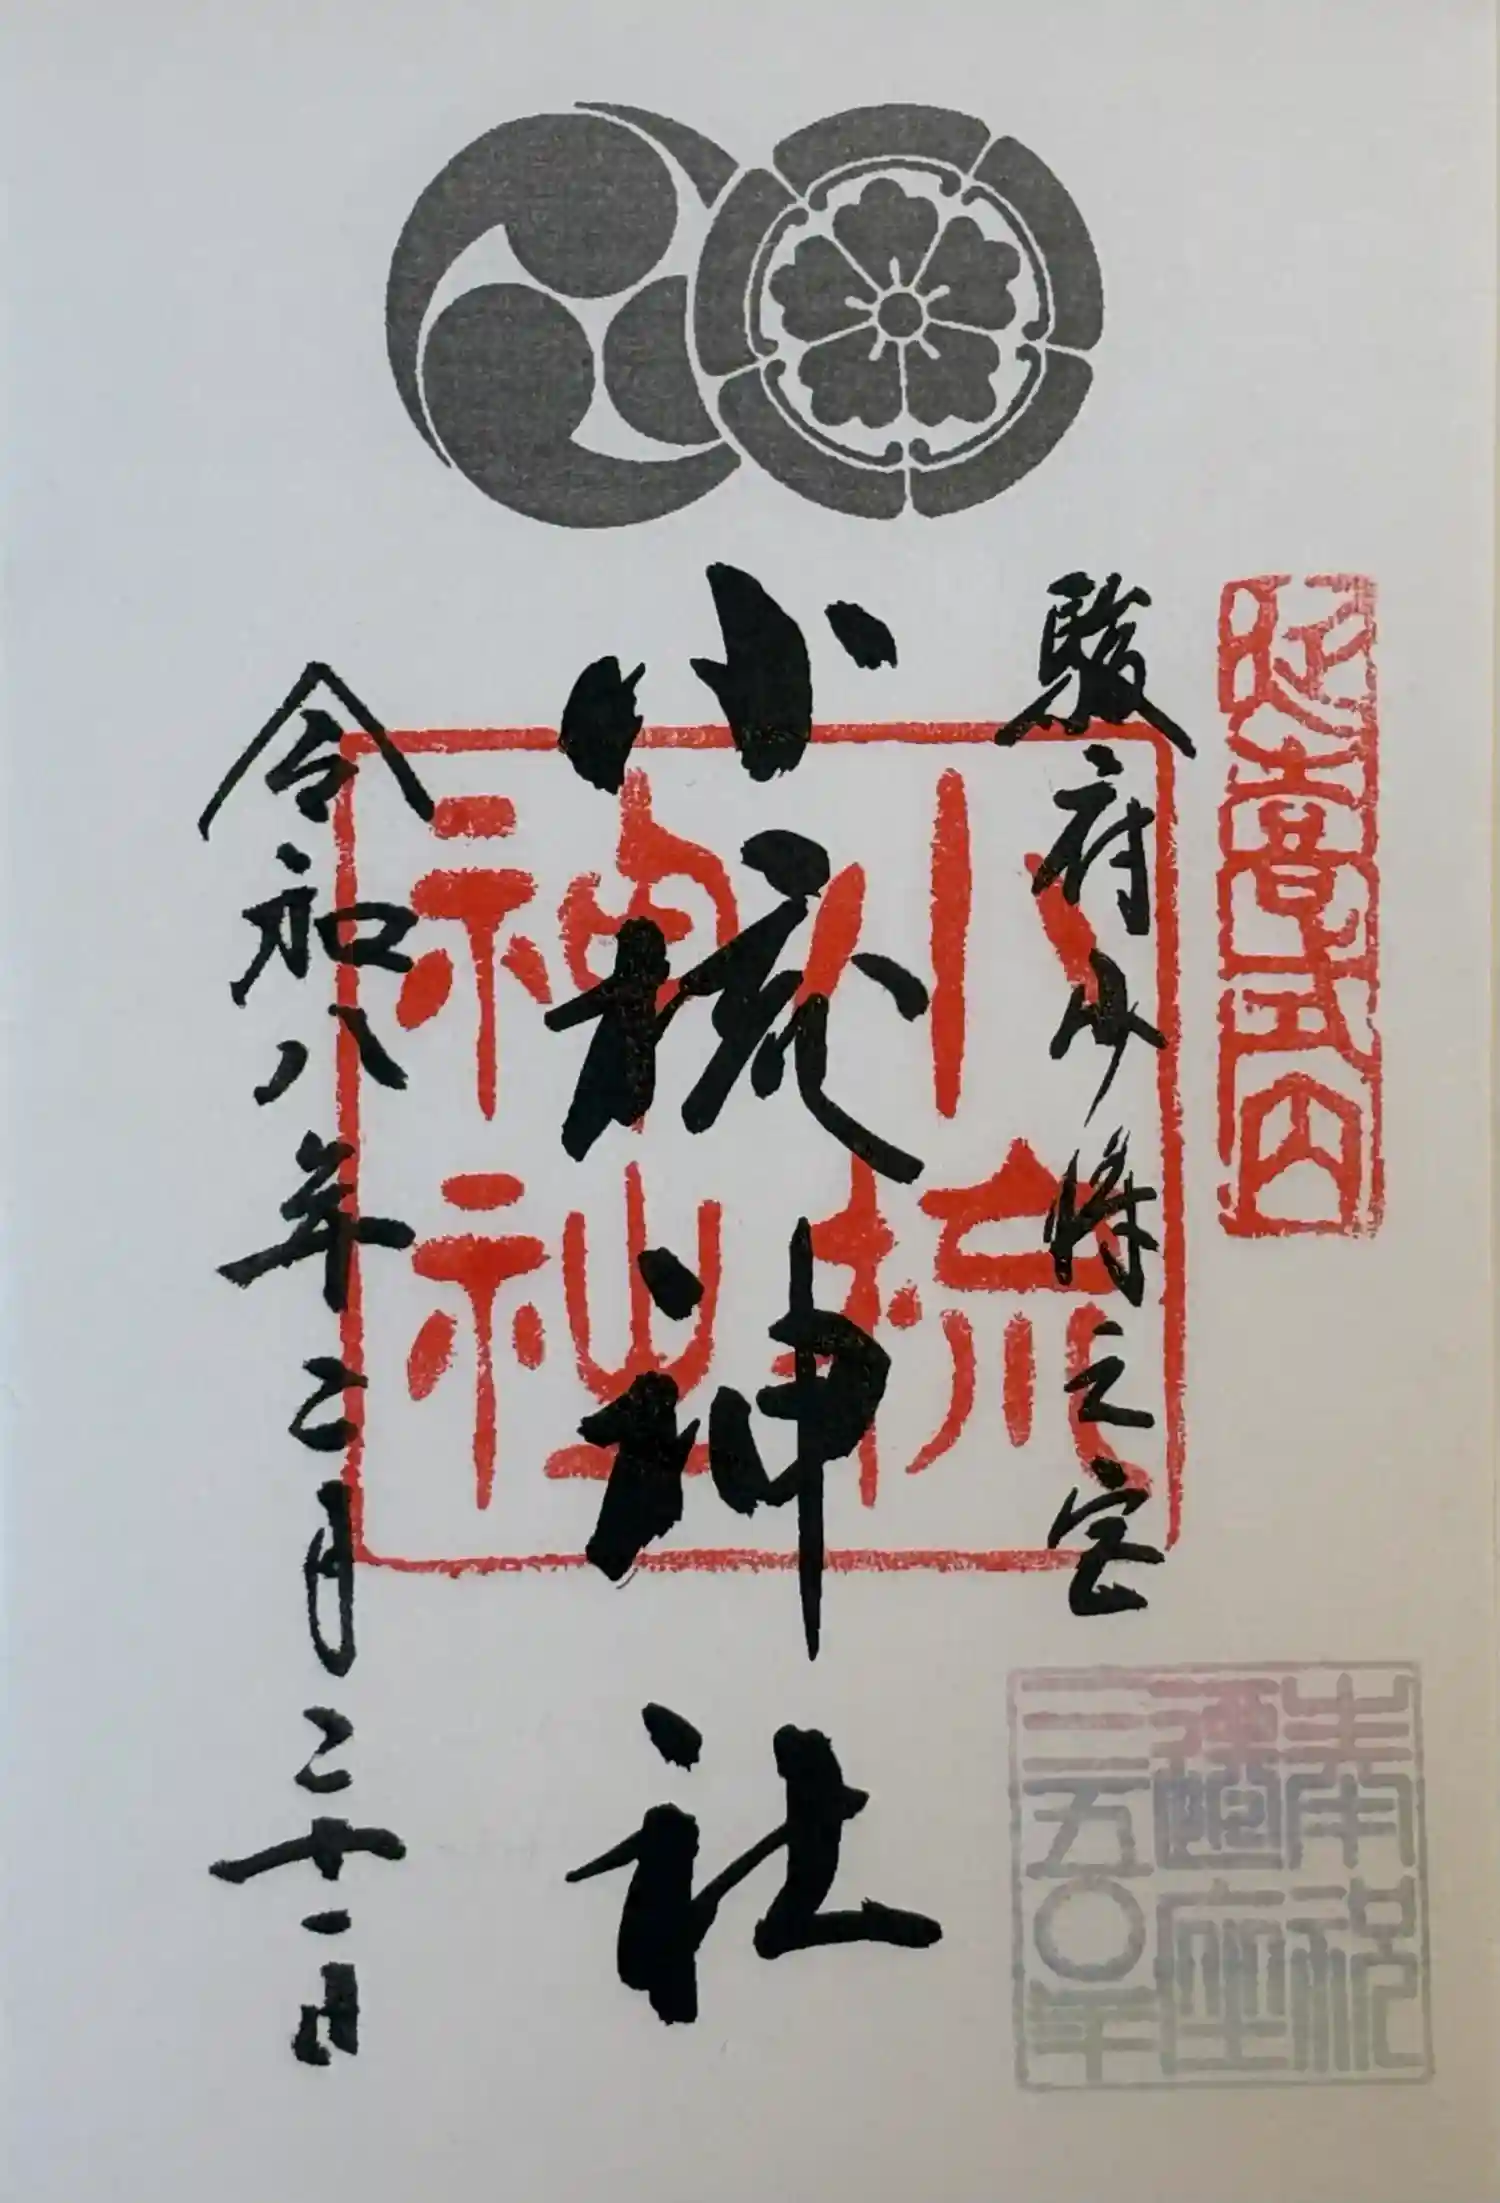 延喜式内
駿府少将之宮
小梳神社
小梳
神社
令和八年二月二十一日
奉祝
遷座
三五〇年